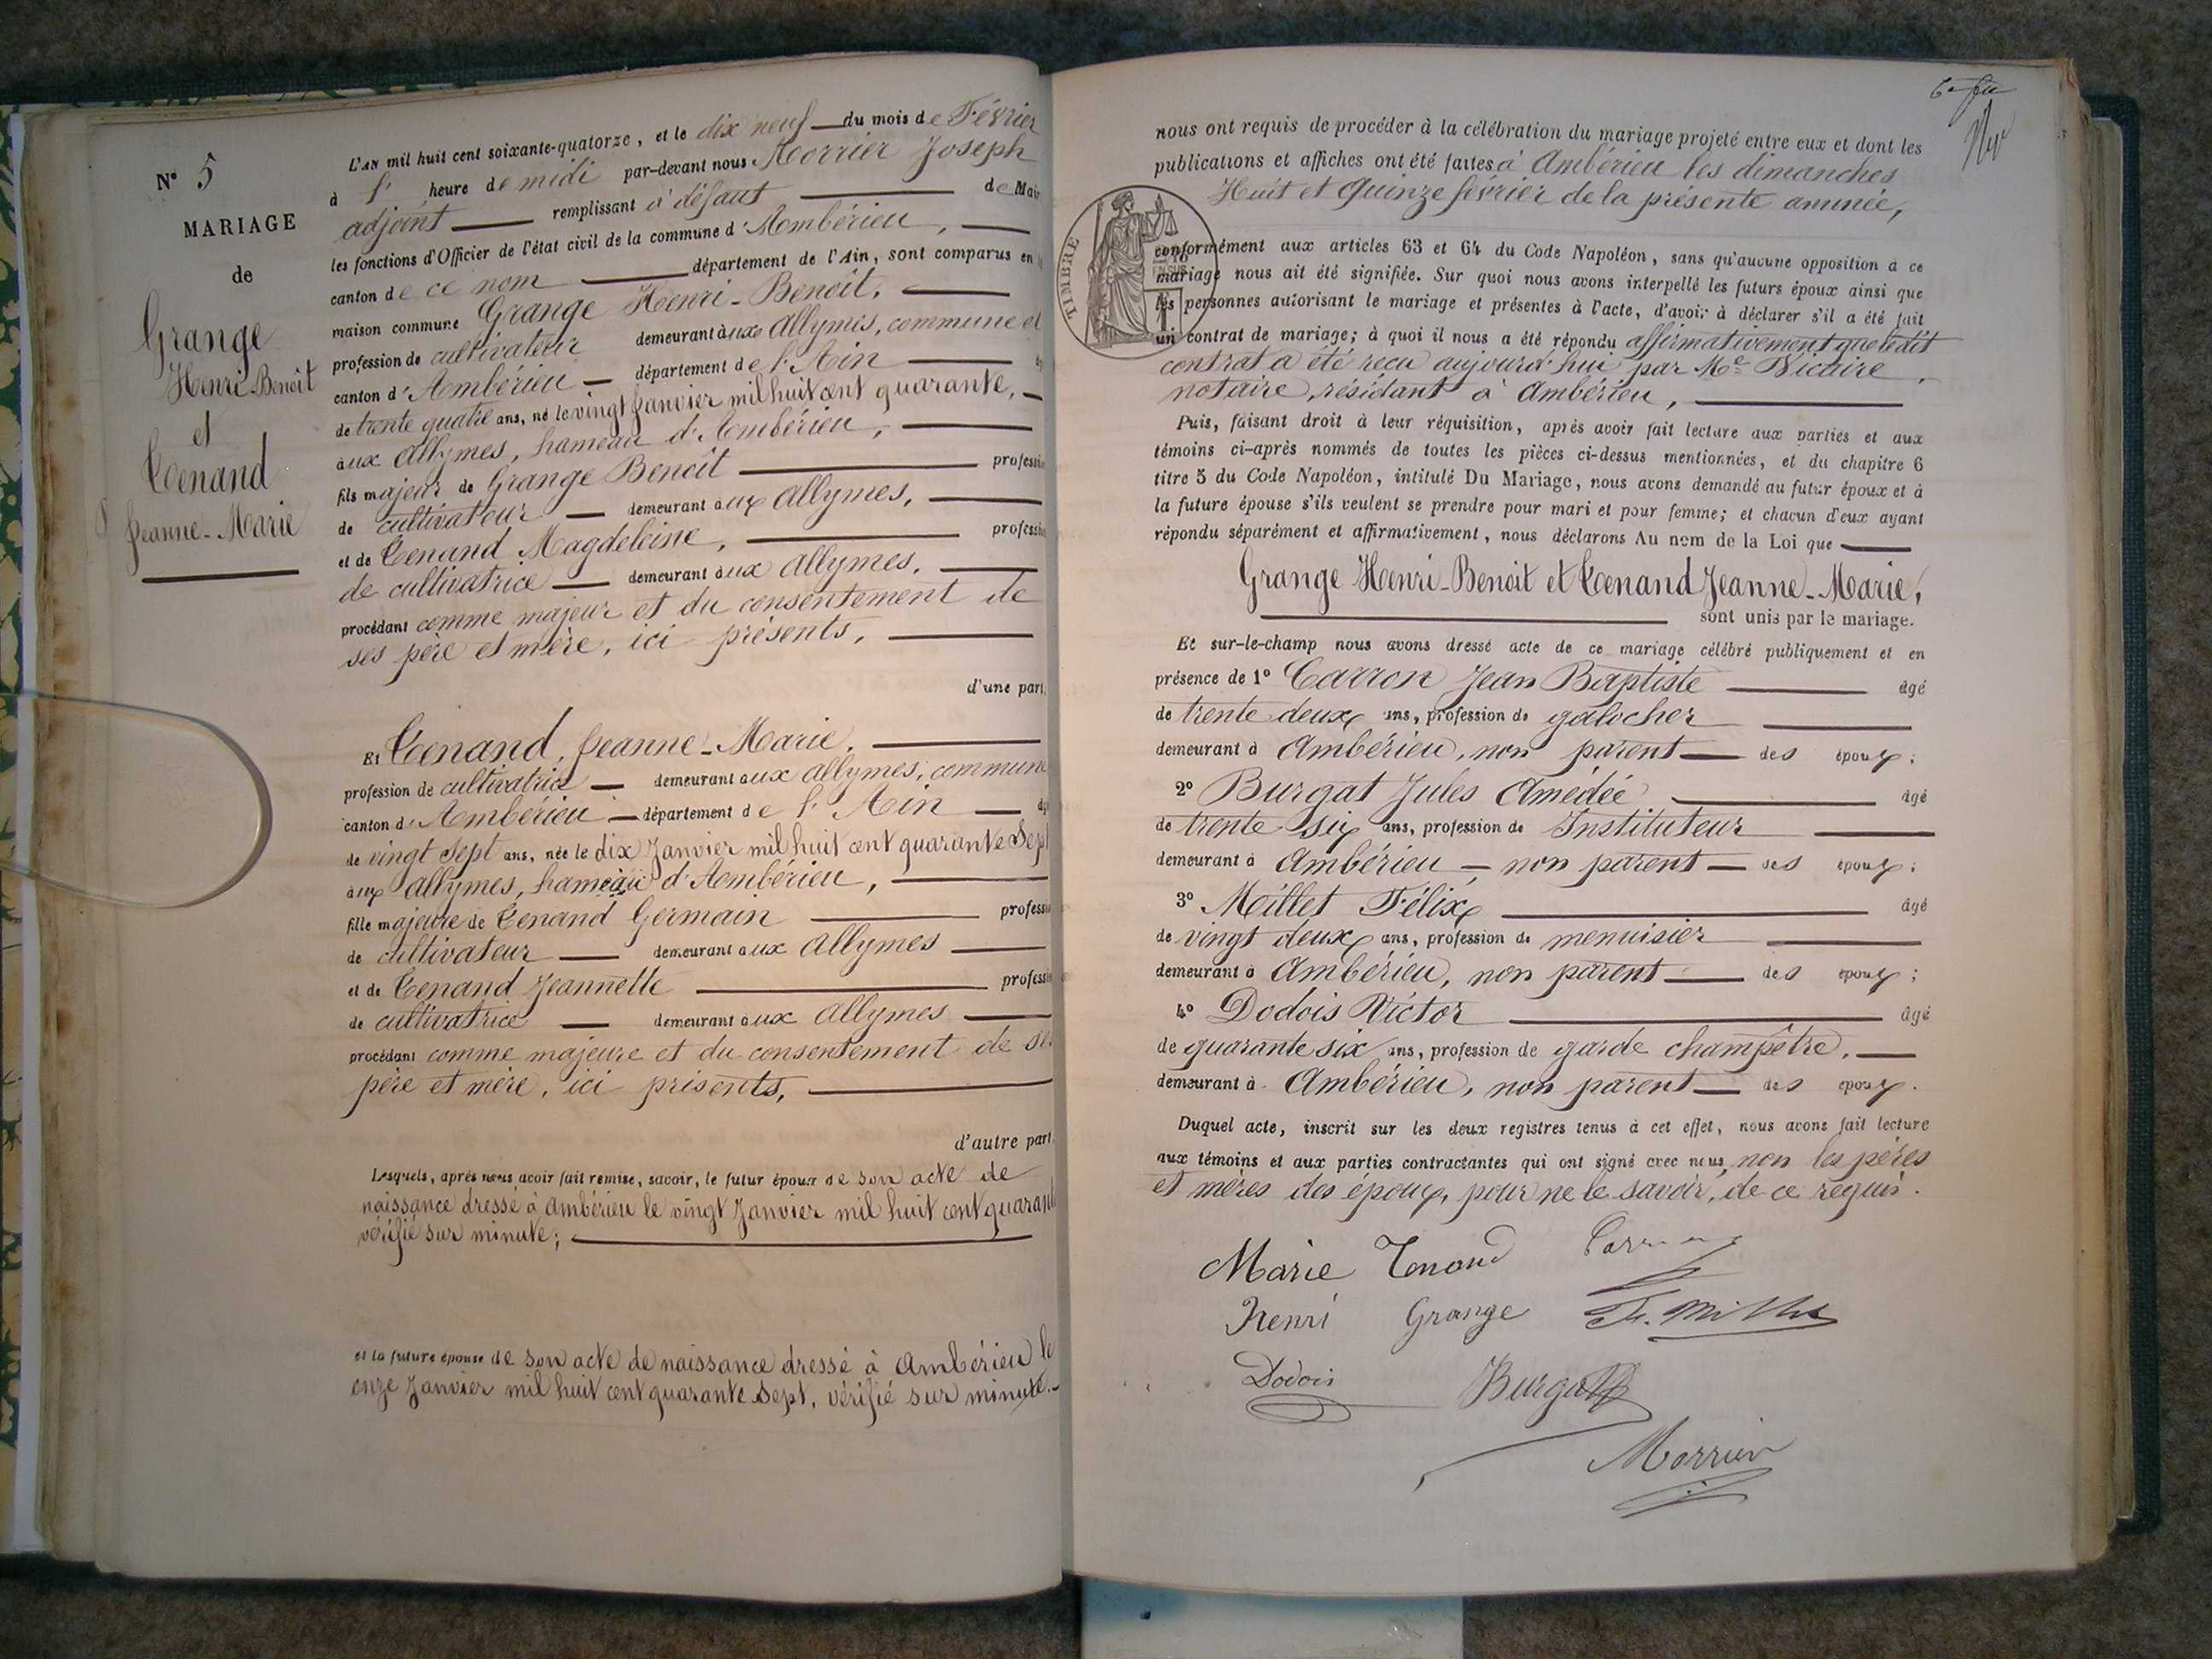 N° 5
MARIAGE
de
Grange
Henri-Benoît
et
Tenand
Jeanne-Marie
L'AN mil huit cent soixante-quatorze, et le dix neuf du mois de Février
à l' heure de midi par-devant nous Morrier Joseph
adjoint remplissant à défaut de Mair
les fonctions d'Officier de l'état civil de la commune d'Ambérieu,
canton de ce nom département de l'Ain, sont comparus en
maison commune Grange Henri-Benoît,
profession de cultivateur demeurant aux Allymes, commune et
canton d'Ambérieu département de l'Ain
de trente quatre ans, né le vingt Janvier mil huit cent quarante,
aux Allymes, hameau d'Ambérieu,
fils majeur de Grange Benoît professi
de cultivateur demeurant aux Allymes,
et de Tenand Magdeleine, professi
de cultivatrice demeurant aux Allymes,
procédant comme majeur et du consentement de
ses père et mère, ici présents,
d'une part,
Et Tenand, Jeanne-Marie,
profession de cultivatrice demeurant aux Allymes, commune
canton d'Ambérieu département de l'Ain
de vingt sept ans, née le dix Janvier mil huit cent quarante Sept
aux Allymes, hameau d'Ambérieu,
fille majeure de Tenand Germain professi
de cultivateur demeurant aux Allymes
et de Tenand Jeannette professi
de cultivatrice demeurant aux Allymes
procédant comme majeure et du consentement de se
père et mère, ici présents,
d'autre part.
Lesquels, après nous avoir fait remise, savoir, le futur époux de son acte de
naissance dressé à Ambérieu le vingt Janvier mil huit cent quarante
vérifié sur minute;
et la future épouse de son acte de naissance dressé à Ambérieu le
onze Janvier mil huit cent quarante sept, vérifié sur minute.
nous ont requis de procéder à la célébration du mariage projeté entre eux et dont les
publications et affiches ont été faites à Ambérieu les dimanches
Huit et Quinze février de la présente année,
TIMBRE
conformément aux articles 63 et 64 du Code Napoléon, sans qu'aucune opposition à ce
mariage nous ait été signifiée. Sur quoi nous avons interpellé les futurs époux ainsi que
les personnes autorisant le mariage et présentes à l'acte, d'avoir à déclarer s'il a été fait
un contrat de mariage; à quoi il nous a été répondu affirmativement que ledit
contrat a été reçu aujourd'hui par Me Vicaire,
notaire, résidant à Ambérieu,
Puis, faisant droit à leur réquisition, après avoir fait lecture aux parties et aux
témoins ci-après nommés de toutes les pièces ci-dessus mentionnées, et du chapitre 6
titre 5 du Code Napoléon, intitulé Du Mariage, nous avons demandé au futur époux et à
la future épouse s'ils veulent se prendre pour mari et pour femme; et chacun d'eux ayant
répondu séparément et affirmativement, nous déclarons Au nom de la Loi que
Grange Henri-Benoît et Tenand Jeanne-Marie,
sont unis par le mariage.
Et sur-le-champ nous avons dressé acte de ce mariage célébré publiquement et en
présence de 1° Carron Jean Baptiste âgé
de trente deux ans, profession de galocher
demeurant à Ambérieu, non parent des époux;
2° Burgat Jules Amédée âgé
de trente six ans, profession de Instituteur
demeurant à Ambérieu non parent des époux;
3° Millet Félix âgé
de vingt deux ans, profession de menuisier
demeurant à Ambérieu, non parent des époux;
4° Dodois Victor âgé
de quarante six ans, profession de garde champêtre,
demeurant à Ambérieu, non parent des époux.
Duquel acte, inscrit sur les deux registres tenus à cet effet, nous avons fait lecture
aux témoins et aux parties contractantes qui ont signé avec nous, non les pères
et mères des époux, pour ne le savoir, de ce requis.
Marie Tenand
Henri Grange F. Millet
Dodois Burgat
Morrier